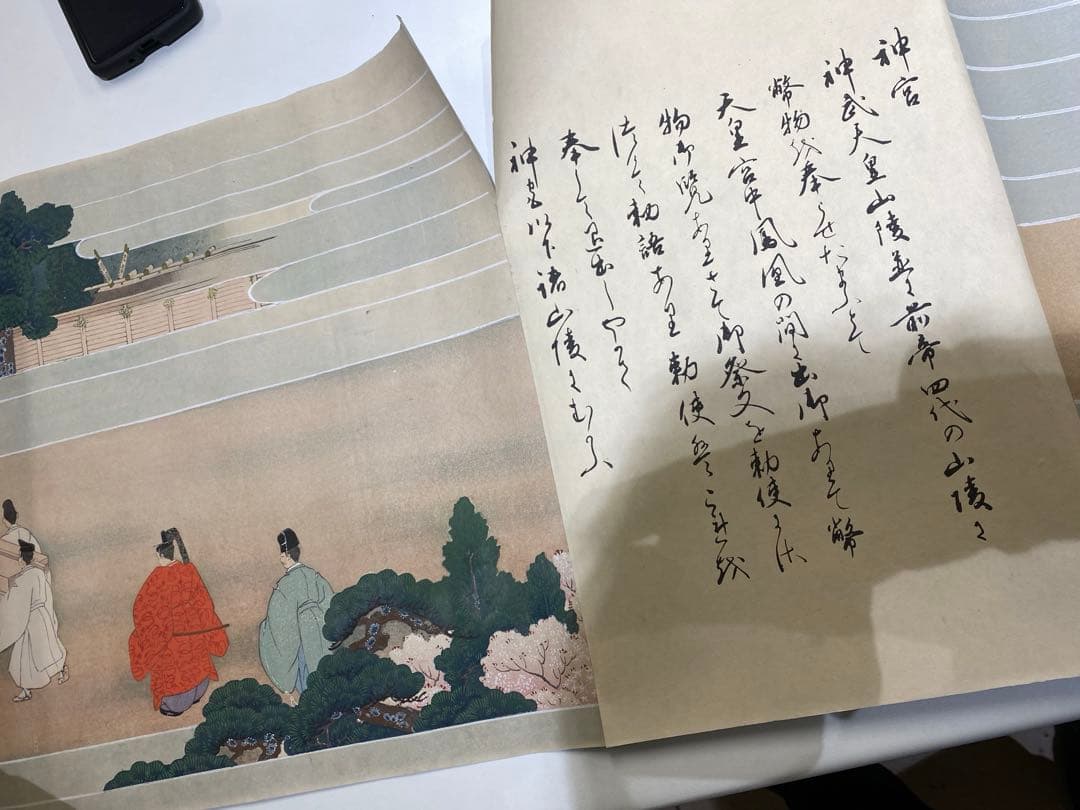 神宮
神武天皇山陵並に前帝四代の山陵に
幣物を奉らせたまふとて
天皇宮中鳳凰の間に出御ありて幣
物御覧ありさて御祭文を勅使に
勅語あり勅使
奉して退出しやかて
神宮以下諸山陵にむかふ